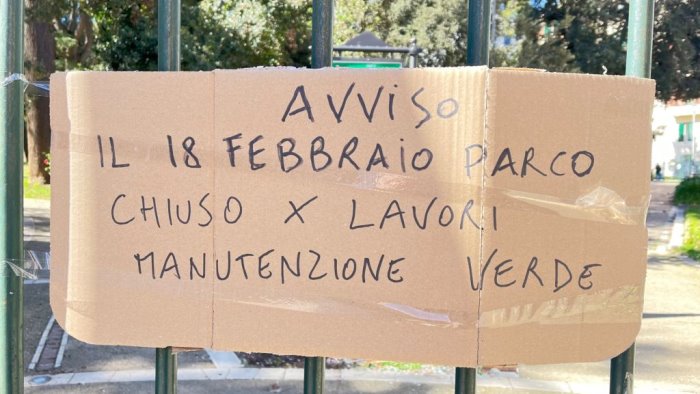 AVVISO
IL 18 FEBBRAIO PARCO
CHIUSO X LAVORI
MANUTENZIONE VERDE